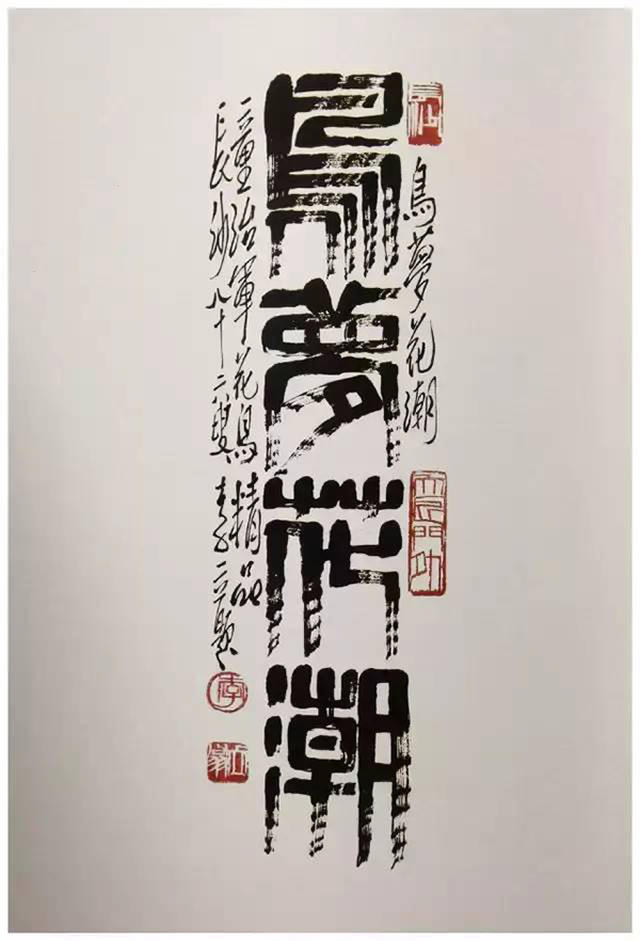 鳥夢花潮
鳥夢花潮
童治軍花鳥精品
長沙八十二叟李立題
李